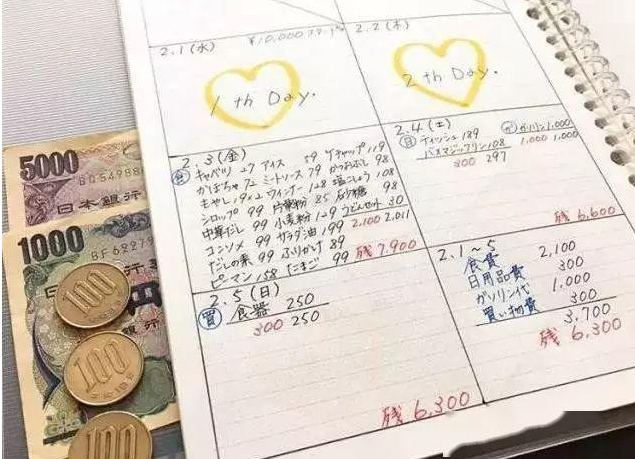 2.1(水)
¥10,000スタート
1 th Day.
2.2(木)
2 th Day.
2.3(金)
食
キャベツ 27 アイス 59 ケチャップ 119
かぼちゃ 72 ミートソース 79 かつおぶし 98
もやし 19×2 ウインナー 128 塩こしょう 108
シロップ 99 片栗粉 85 砂糖 98
中華だし 99 小麦粉 129 うどんセット 30
コンソメ 99 サラダ油 199 2,100 2,011
だしの素 99 ふりかけ 89
ピーマン 158 たまご 99 残 7,900
2.4(土)
日 ティッシュ 189
バスマジックリン 108
300 297
ガソリン 1,000
1,000 1,000
残 6,600
2.5(日)
買 食器 250
300 250
残 6,300
2.1~5
食費 2,100
日用品費 300
ガソリン代 1,000
買い物費 300
3,700
残 6,300
5000
日本銀行
1000
100
100
100